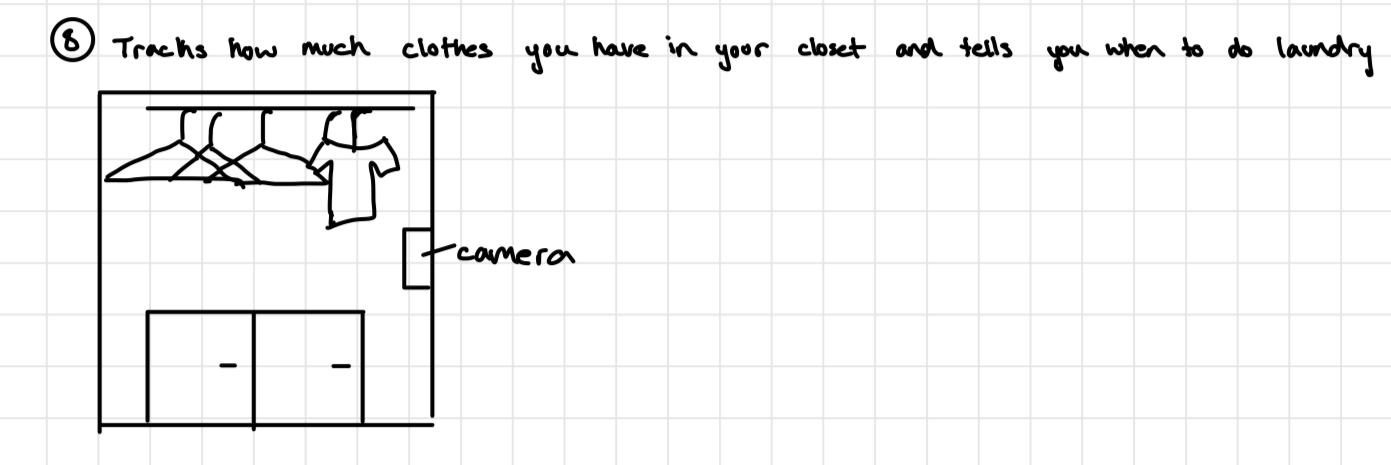 ⑧ Tracks how much clothes you have in your closet and tells you when to do laundry
camera